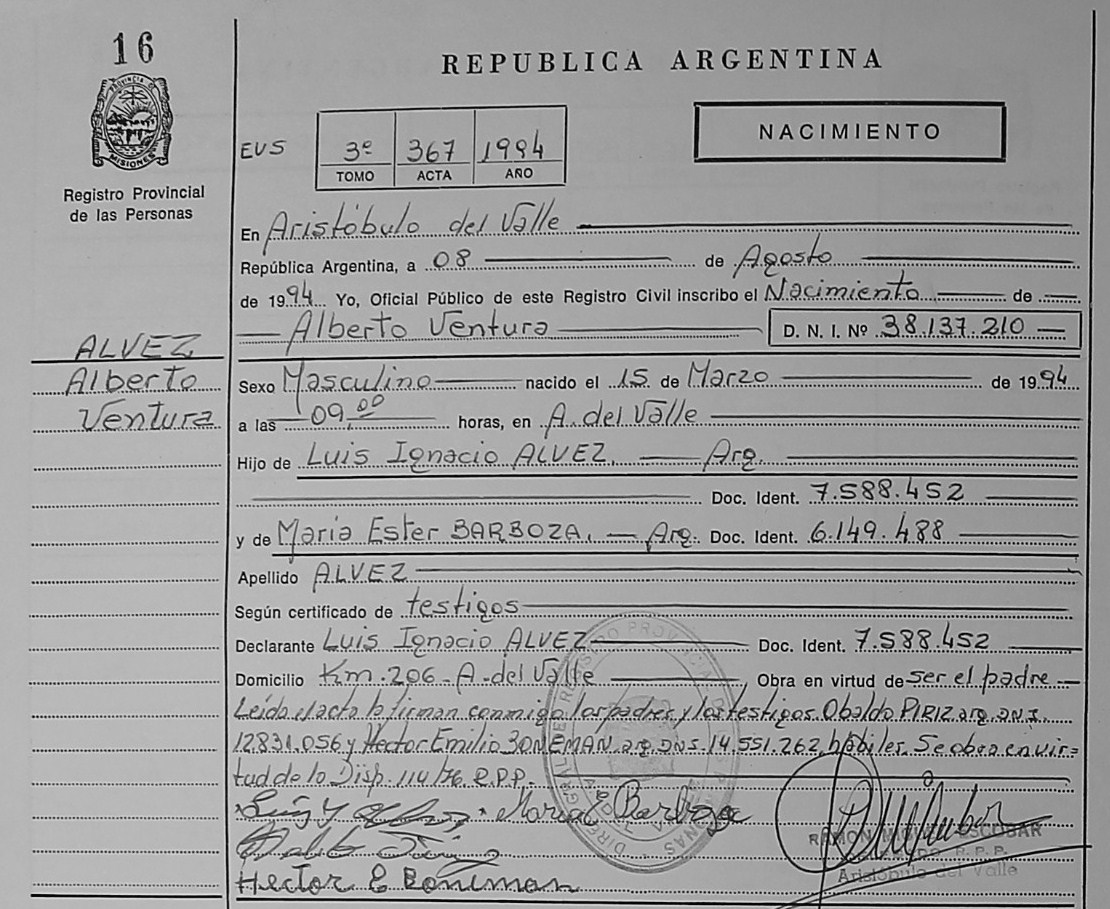 16
REPUBLICA ARGENTINA
PROVINCIA DE
MISIONES
Registro Provincial
de las Personas
EVS 3º 367 1994
TOMO ACTA AÑO
NACIMIENTO
En Aristóbulo del Valle
República Argentina, a 08 de Agosto
de 1994 Yo, Oficial Público de este Registro Civil inscribo el Nacimiento de
Alberto Ventura D. N. I. Nº 38.137.210
ALVEZ
Alberto
Ventura
Sexo Masculino nacido el 15 de Marzo de 1994
a las 09,00 horas, en A. del Valle
Hijo de Luis Ignacio ALVEZ. Arg.
Doc. Ident. 7.588.452
y de Maria Ester BARBOZA. Arg. Doc. Ident. 6.149.488
Apellido ALVEZ
Según certificado de testigos
Declarante Luis Ignacio ALVEZ Doc. Ident. 7.588.452
Domicilio Km. 206 - A. del Valle Obra en virtud de ser el padre
Leída el acta la firman conmigo los padres y los testigos Obaldo PIRIZ arg. DNI.
12.831.056 y Hector Emilio BONEMAN arg. DNS. 14.551.262, hábiles. Se obra en vir=
tud de lo Disp. 114/76. R.P.P.
Maria E Barboza
RAMON ESCOBAR
R. P. P.
Aristóbulo del Valle
Hector E Boneman